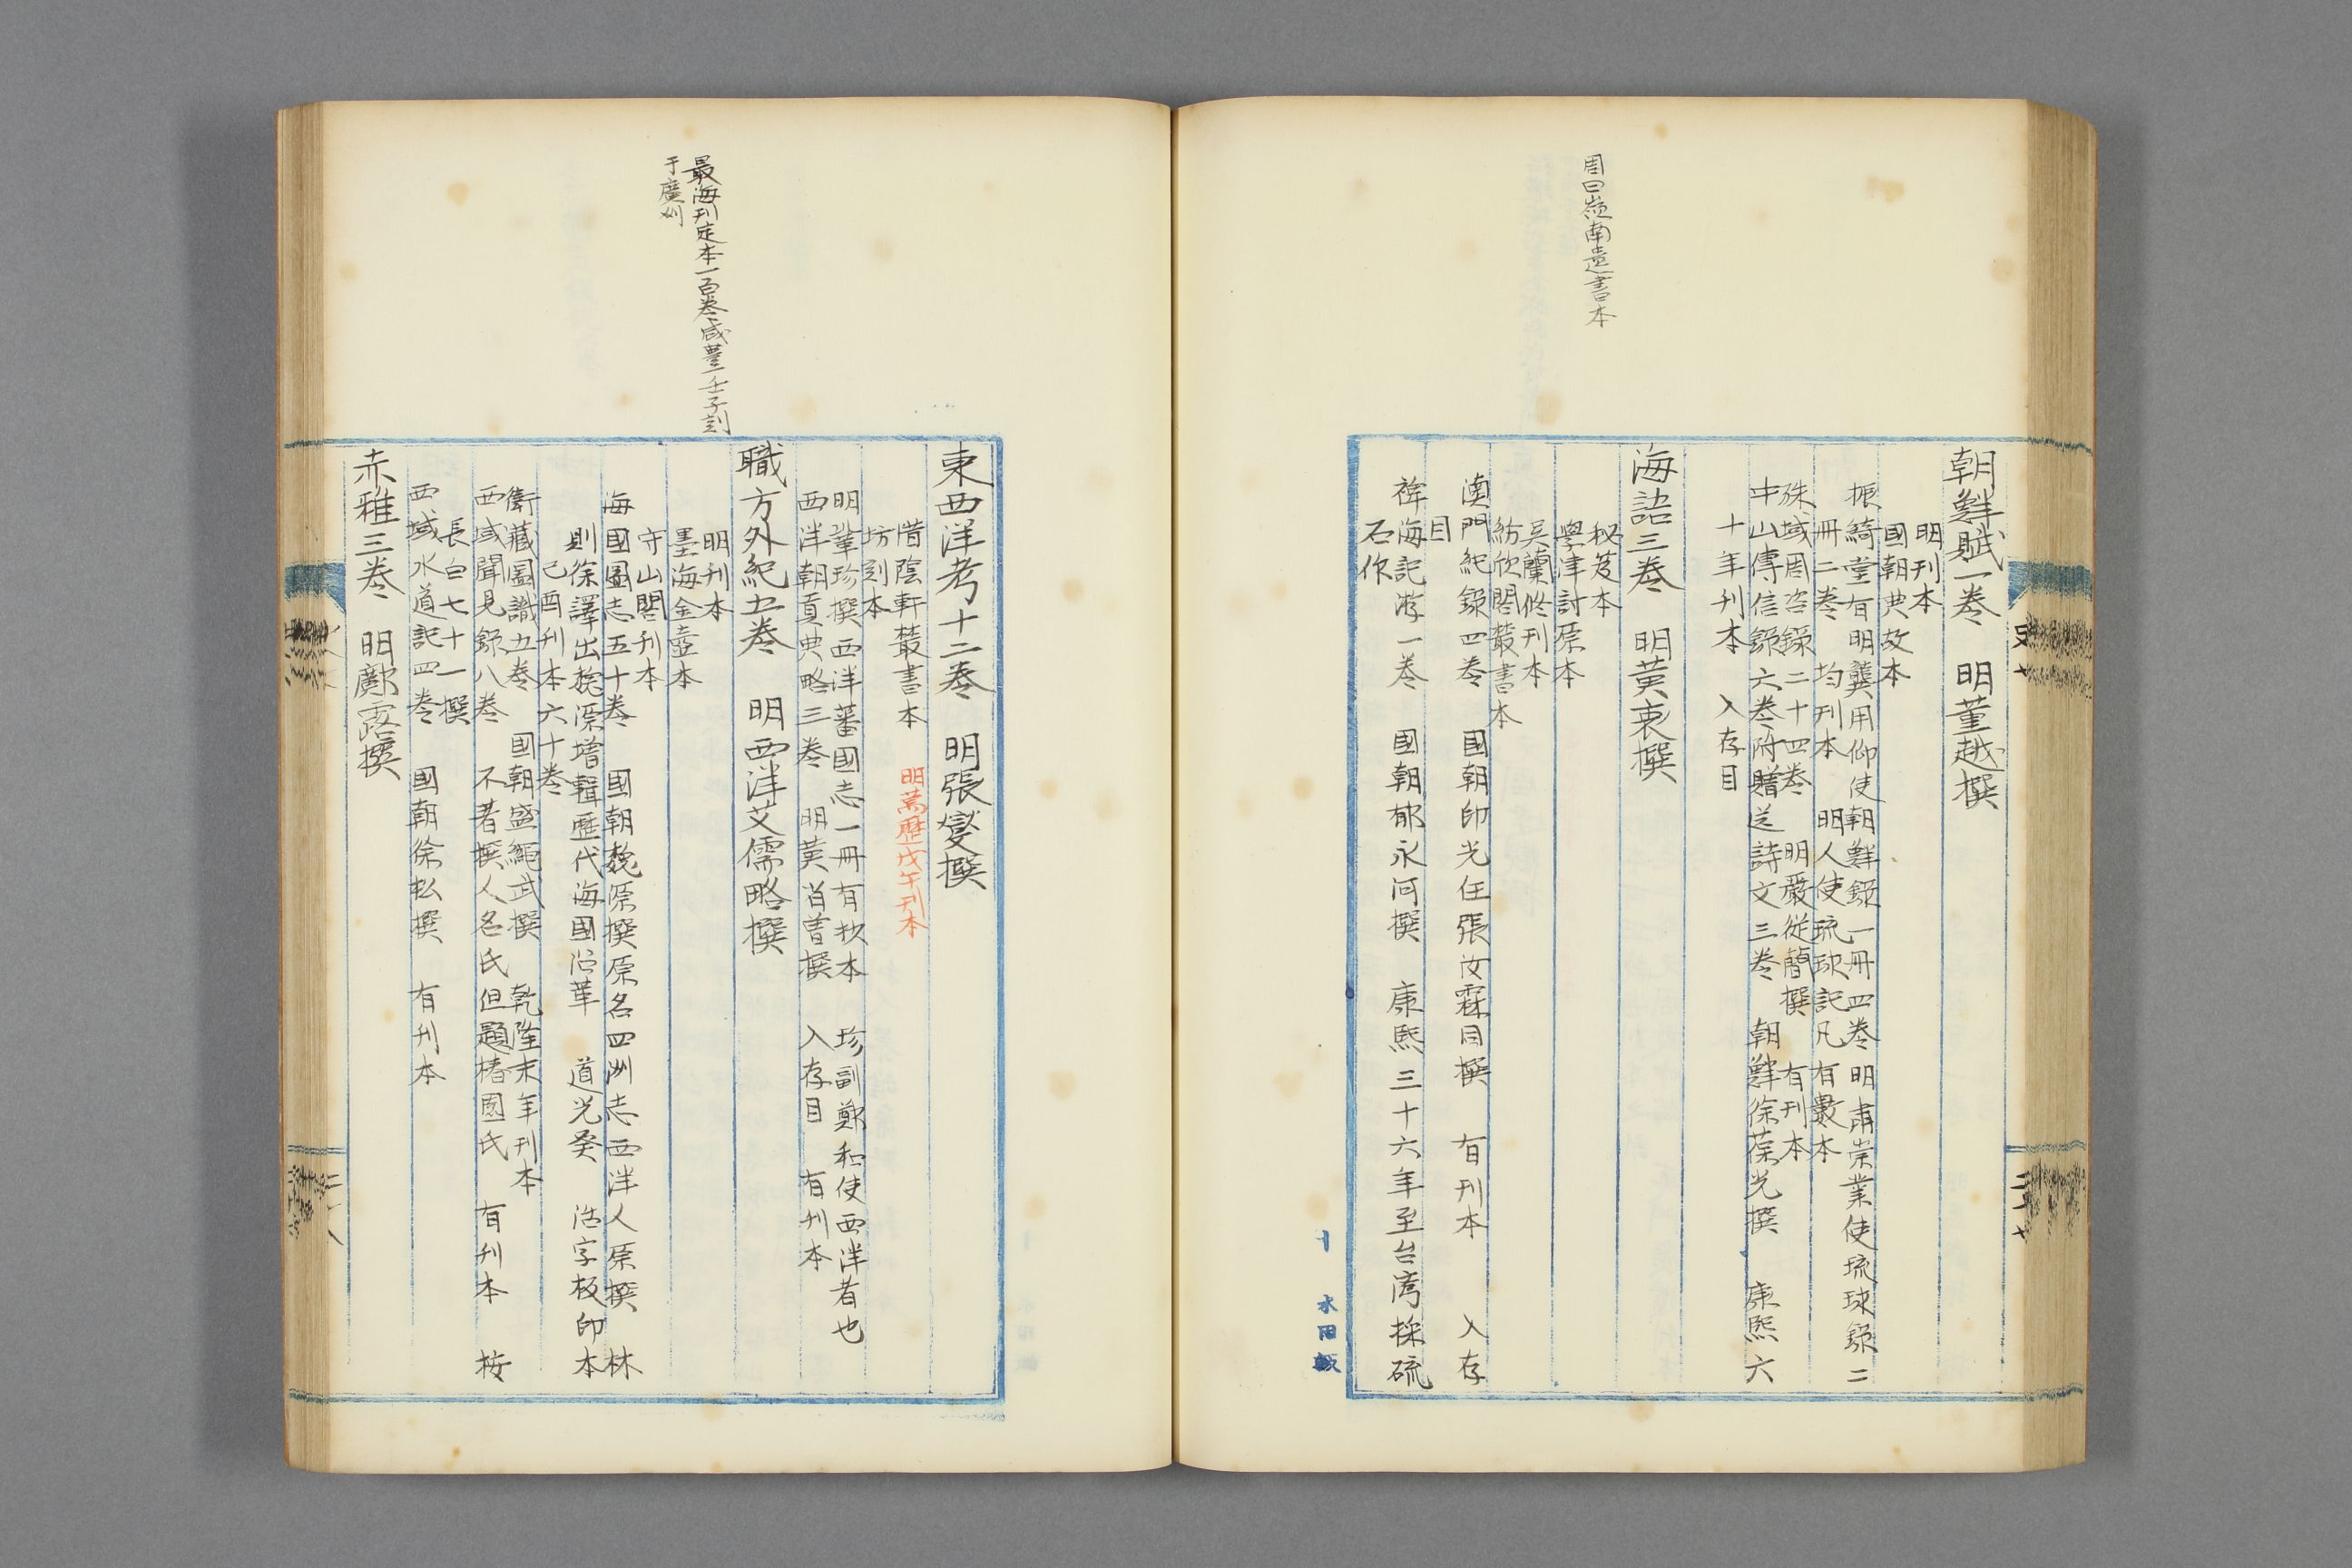 周曰嶺南遺書本
朝鮮賦一卷　明董越撰
明刊本
國朝典故本
振綺堂有明龔用仰使朝鮮錄一冊四卷　明肅崇業使琉球錄二
冊二卷　均刊本　明人使琉球記凡有數本
殊域周咨錄二十四卷　明嚴從簡撰　有刊本
中山傳信錄六卷附贈送詩文三卷　朝鮮徐葆光撰　康熙六
十年刊本　入存目
海語三卷　明黃衷撰
秘笈本
學津討原本
吳蘭修刊本
紛欣閣叢書本
澳門紀錄四卷　國朝印光任張汝霖同撰　有刊本　入存
目
裨海記游一卷　國朝郁永河撰　康熙三十六年至台灣採硫
石作
史十
水田
最海刊定本一百卷咸豐壬子刻
于廣州
東西洋考十二卷　明張燮撰
惜陰軒叢書本　明萬歷戊午刊本
坊刻本
明鞏珍撰西洋蕃國志一冊有抄本　珍訓鄭和使西洋者也
西洋朝貢典略三卷　明黃省曾撰　入存目　有刊本
職方外紀五卷　明西洋艾儒略撰
明刊本
墨海金壺本
守山閣刊本
海國圖志五十卷　國朝魏源撰原名四洲志西洋人原撰　林
則徐譯出魏源增輯歷代海國沿革　道光癸　活字板印本
己酉刊本六十卷
衛藏圖識五卷　國朝盛繩武撰　乾隆末年刊本
西域聞見錄八卷　不著撰人名氏但題椿園氏　有刊本　按
長白七十一撰
西域水道記四卷　國朝徐松撰　有刊本
赤雅三卷　明鄺露撰